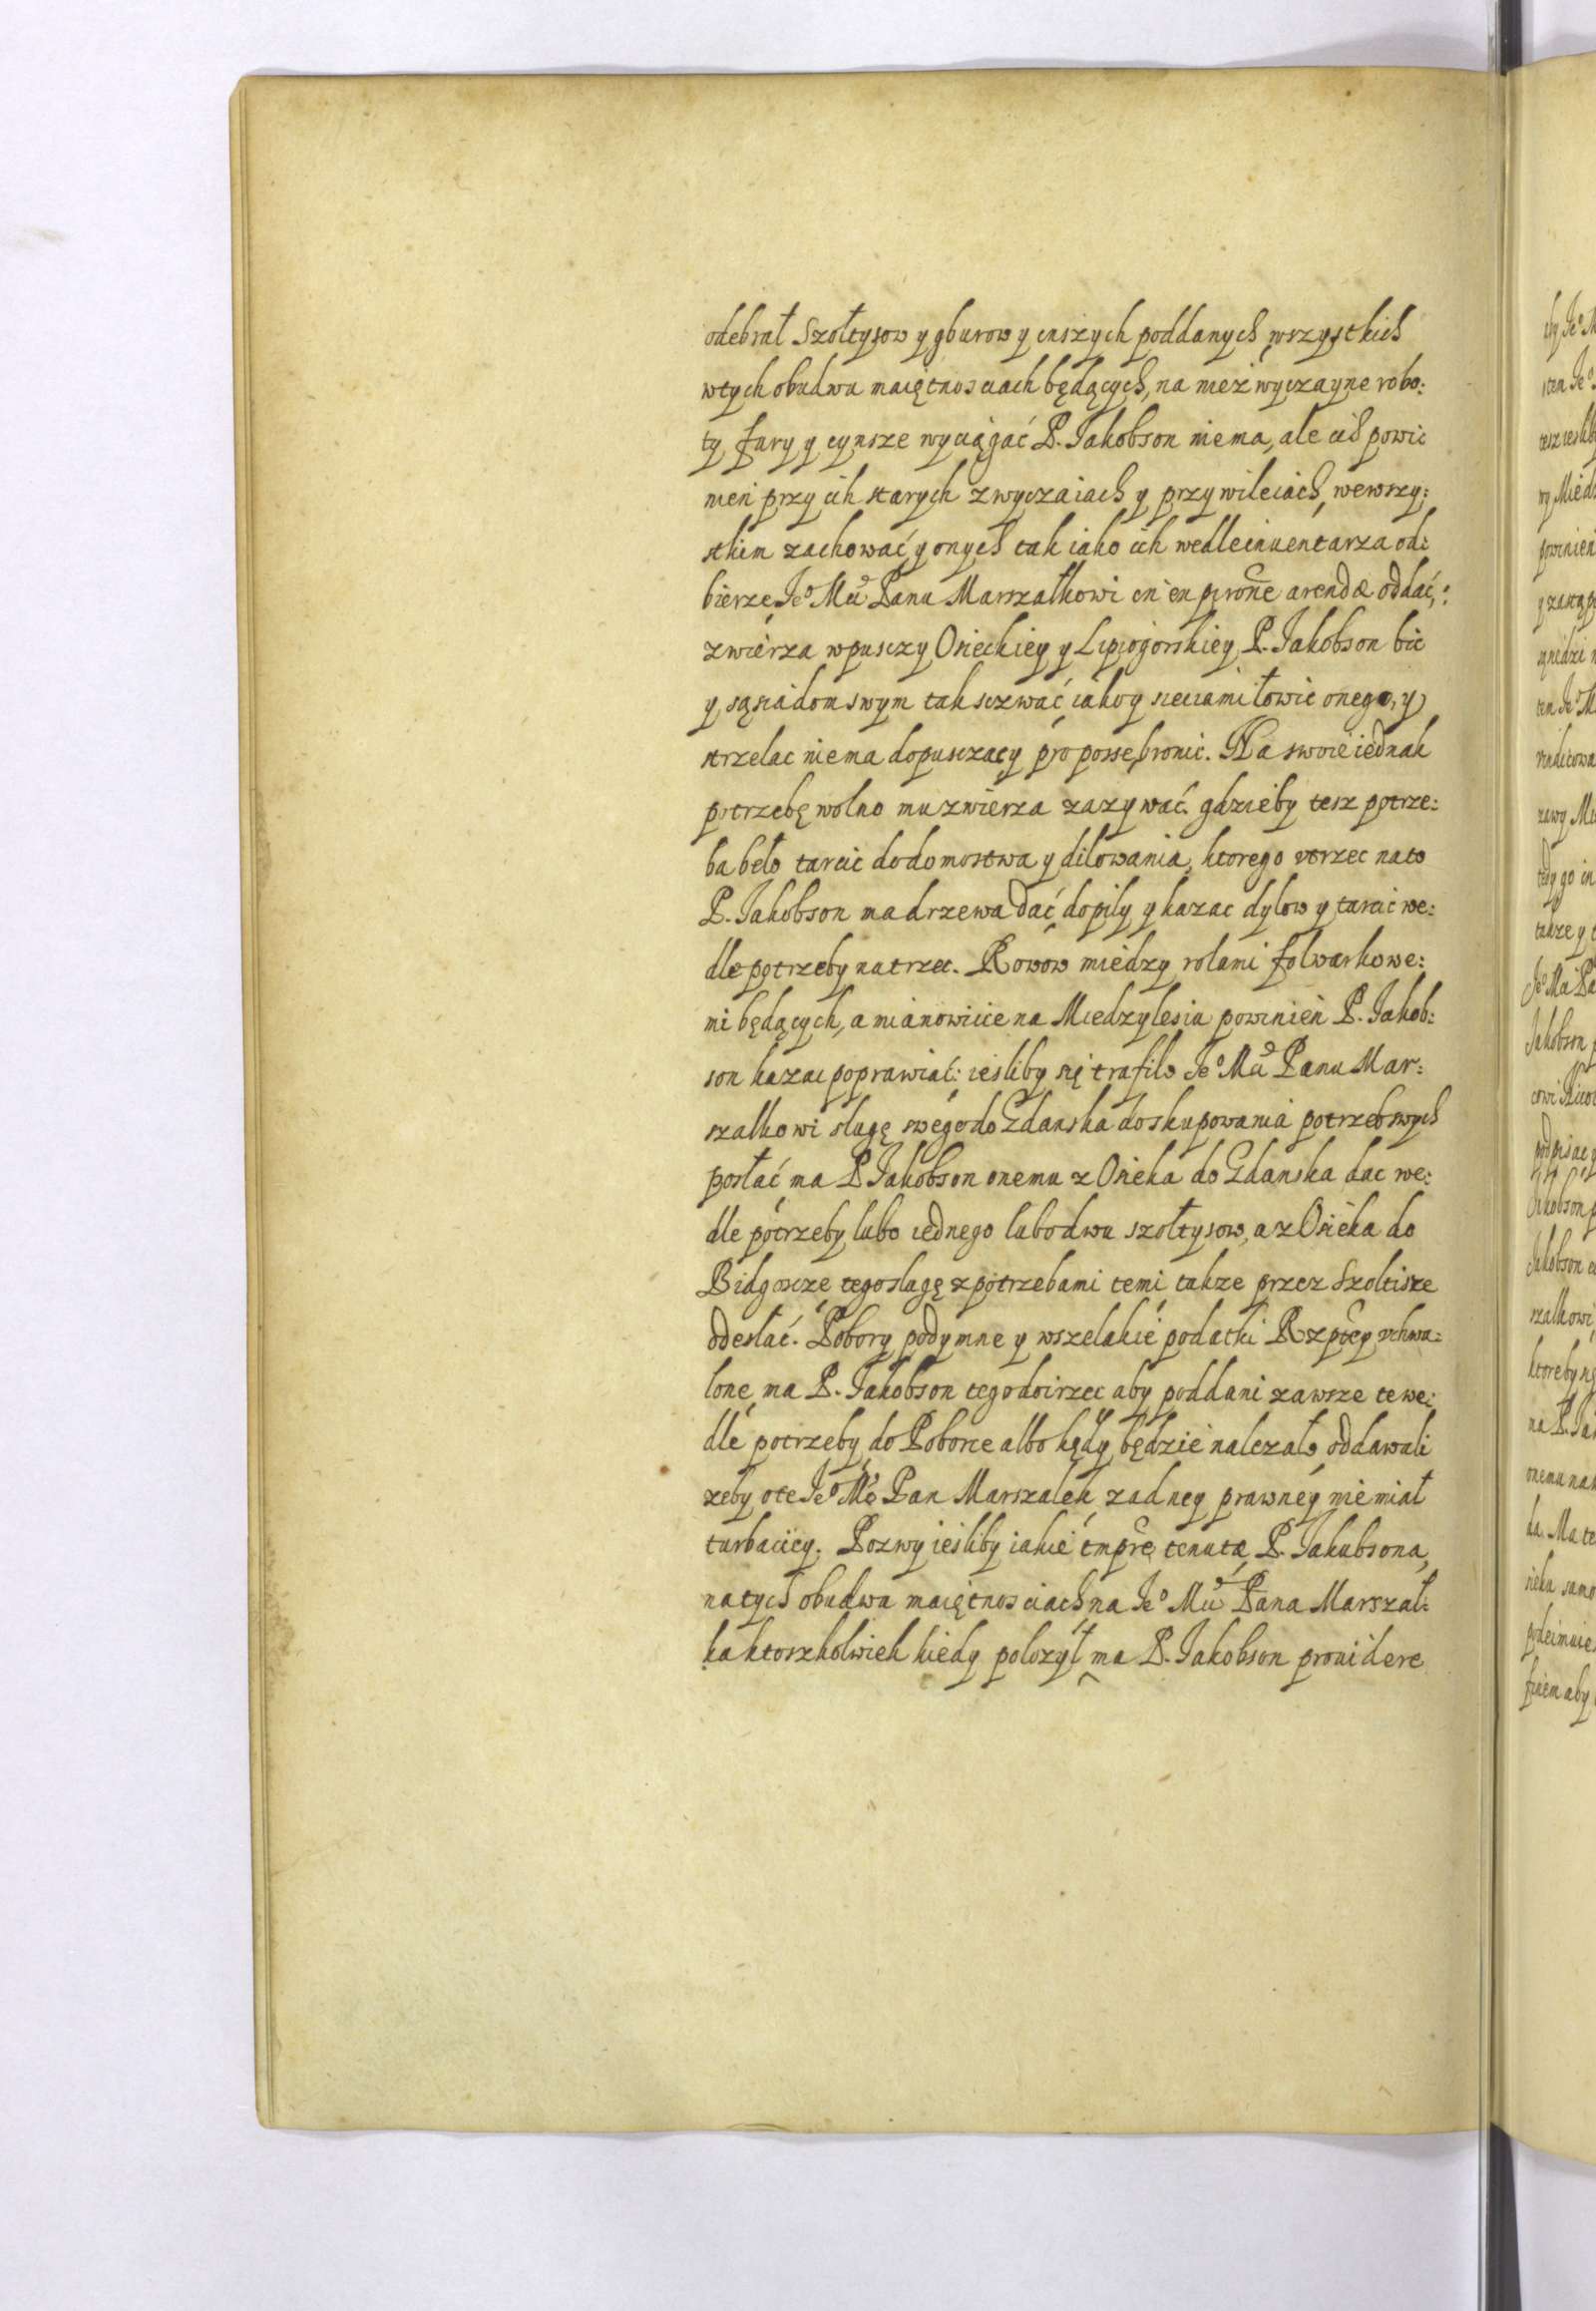 odebrał Szołtysow y gburow y inszych poddanych wszystkich
wtych obudwu maiętnosciach będących, na niezwyczayne robo:
ty fury y cynsze wyciągać P. Jakobson niema, ale ich powi
nien przy ich starych zwyczaiach y przywileiach, wewszy:
stkim zachować y onych tak iako ich wedle inuentarza od:
bierze, Je⁰ Mci Panu Marszałkowi in arendæ oddać,:
zwierza wpusczy Osieckiey y Lipiogorskiey P. Jakobson bic
y sąsiadom swym tak sczwać iako y sieciami łowic onego, y
strzelac niema dopusczacy pro posse bronic. Na swoie iednak
potrzebę wolno mu zwierza zazywać. gdzieby tesz potrze:
ba beło tarcic dodomostwa y dilowania, ktorego vtrzec nato
P. Jakobson ma drzewa dać dopily y kazac dylow y tarcic we:
dle potrzeby natrzec. Rowow miedzy rolami folwarkowe:
mi będących, a mianowicie na Miedzylesiu powinien P. Jakob:
son kazac poprawiać: iesliby się trafilo Je⁰ Mci Panu Mar:
szalkowi slugę swego do Gdanska doskupowania potrzeb swych
posłać ma P Jakobson onemu z Osieka do Gdanska dac we:
dle potrzeby lubo iednego lubo dwu szołtysow, a z Osieka do
Bidgoscze tego slugę z potrzebami temi takze przez Szoltisze
odesłać. Pobory podymne y wszelakie podatki Rzptey vchwa:
lone, ma P. Jakobson tego doirzec aby poddani zawsze te we:
dle potrzeby do Poborce albo kędy będzie nalezało oddawali
zeby ote Je⁰ Mę Pan Marszalek zadney prawney nie miał
turbaciey. Pozwy iesliby iakie tmpre tenutæ P. Jakubsona,
natych obudwu maiętnosciach na Je⁰ Mci Pana Marszał:
ka ktoszkolwiek kiedy polozył ma P. Jakobson prouidere